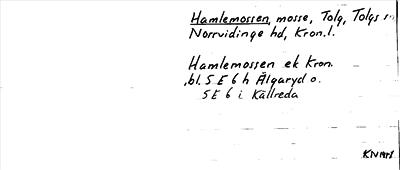 Hamlemossen, mosse, Tolg, Tolgs sn
Norrvidinge hd, Kron.l.
Hamlemossen ek Kron.
bl. 5 E 6 h Älgaryd o.
5 E 6 i Källreda